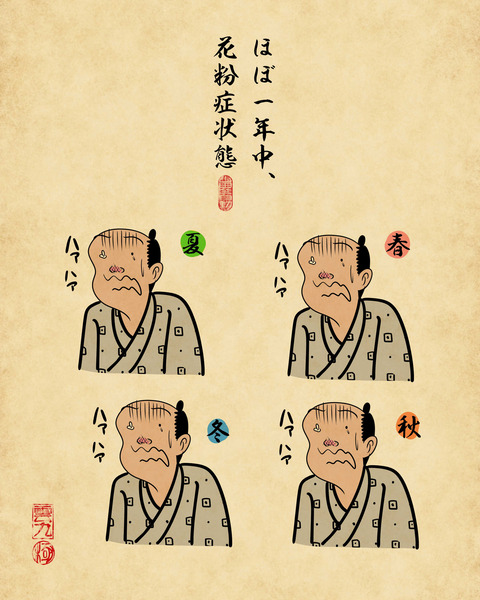 ほぼ一年中、
花粉症状態
春
ハァハァ
夏
ハァハァ
秋
ハァハァ
冬
ハァハァ